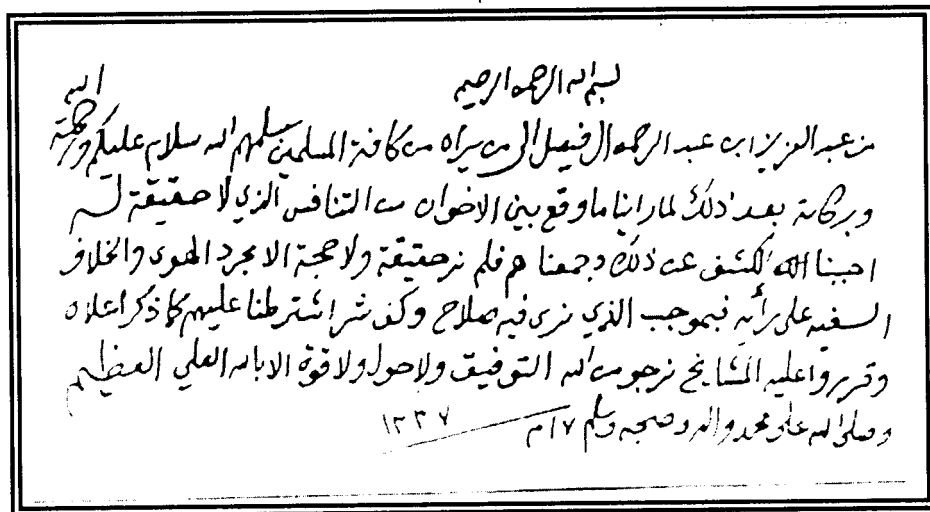 بسم الله الرحمن الرحيم
من عبدالعزيز ابن عبد الرحمن ال فيصل الى من يراه من كافة المسلمين سلمهم الله سلام عليكم ورحمة الله
وبركاته بعد ذلك لما راينا ما وقع بين الاخوان من التنافس الذي لا حقيقة له
احببنا الكشف عن ذلك وجمعناهم فلم نر حقيقة ولا حجة الا مجرد الهوى والخلاف
السفيه على رأيه فبموجب الذي نرى فيه صلاح وكف شر اشترطنا عليهم كما ذكر اعلاه
وقرروا عليه المشايخ نرجو من الله التوفيق ولا حول ولا قوة الا بالله العلي العظيم
وصلى الله على محمد واله وصحبه وسلم ١٧ م ١٣٣٧